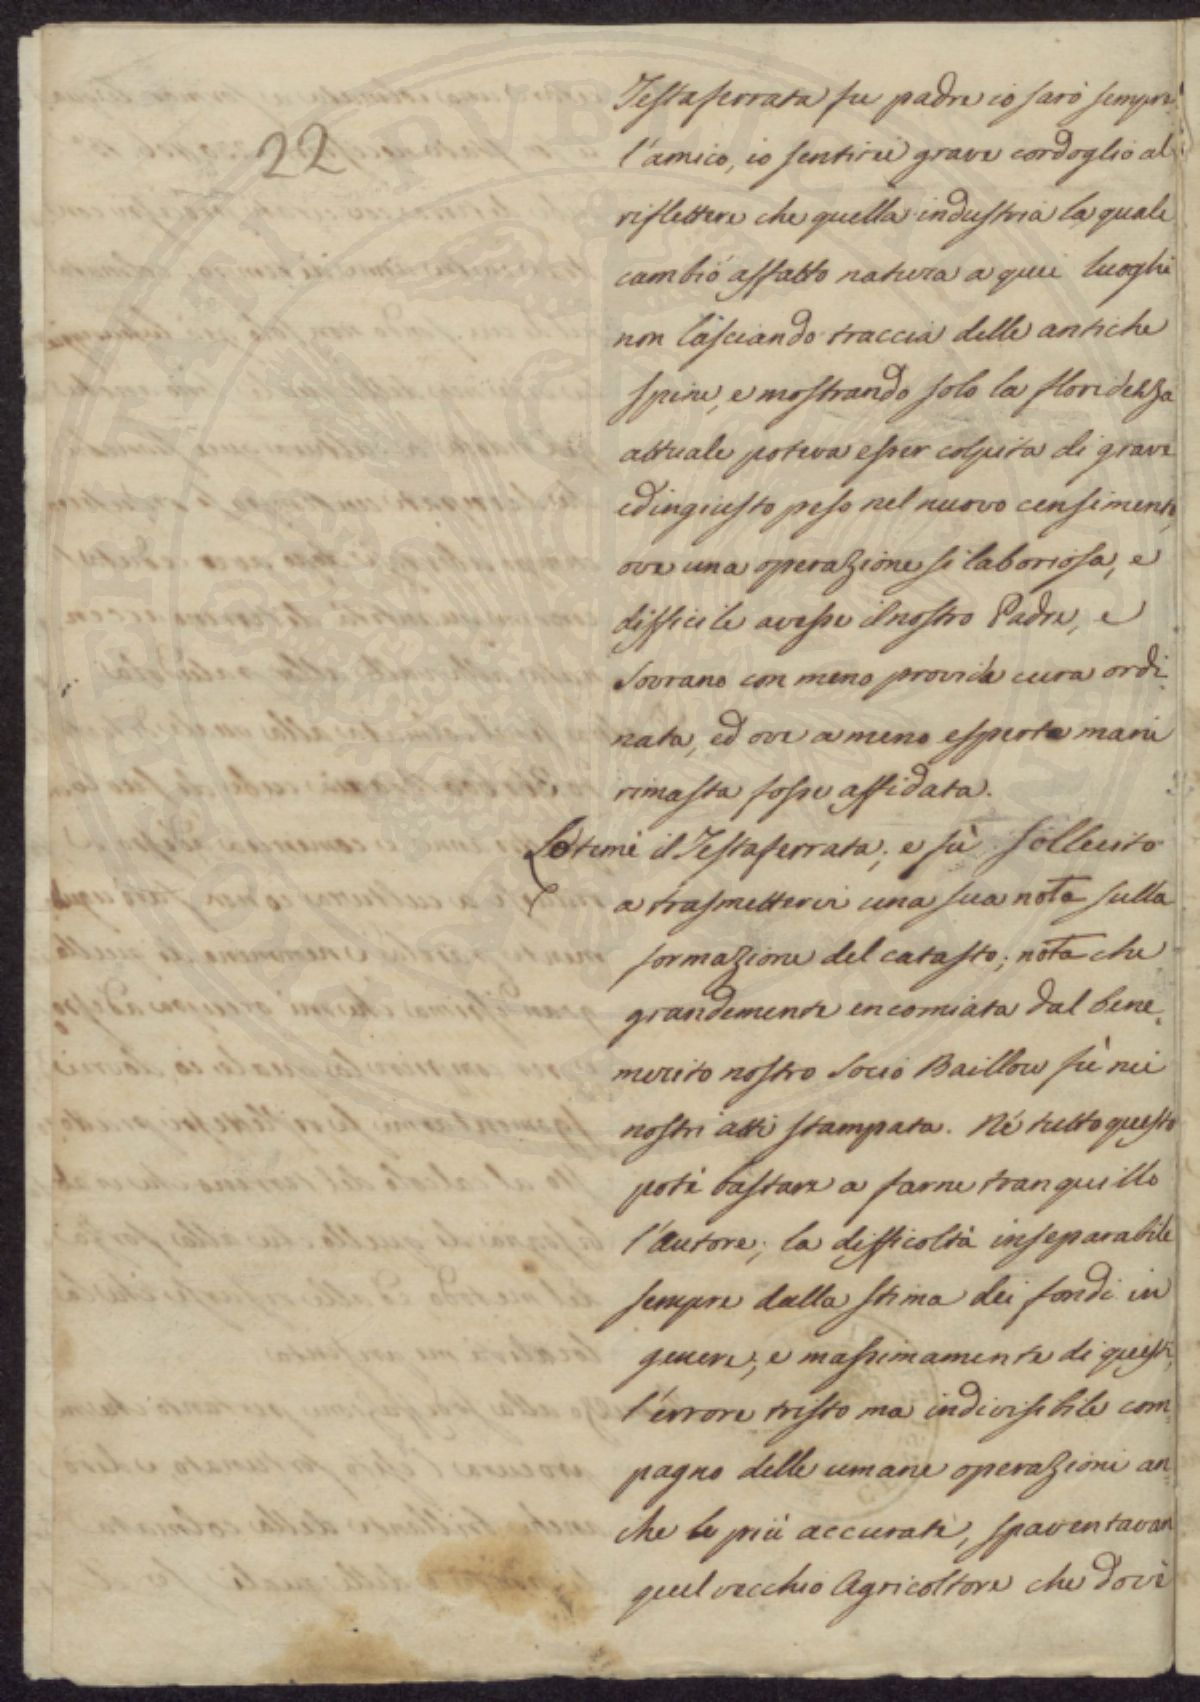 22
Testaferrata fu padre io sarò sempre
l'amico, io sentirei grave cordoglio al
riflettere che quella industria la quale
cambiò affatto natura a quei luoghi
non lasciando traccia delle antiche
spine, e mostrando solo la floridezza
attuale poteva esser colpita di grave
ed ingiusto peso nel nuovo censimento,
ove una operazione si laboriosa, e
difficile avesse il nostro Padre, e
Sovrano con meno provida cura ordi
nata, ed ove a meno esperte mani
rimasta fosse affidata.
Lo temè il Testaferrata; e fù sollecito
a trasmettervi una sua nota sulla
formazione del catasto; nota che
grandemente encomiata dal bene
merito nostro socio Baillou fù nei
nostri atti stampata. Nè tutto questo
potè bastare a farne tranquillo
l'autore; la difficoltà inseparabile
sempre dalla stima dei fondi in
genere, e massimamente di questi,
l'errore tristo ma indivisibile com
pagno delle umane operazioni an
che le più accurate, spaventavan
quel vecchio Agricoltore che dovè